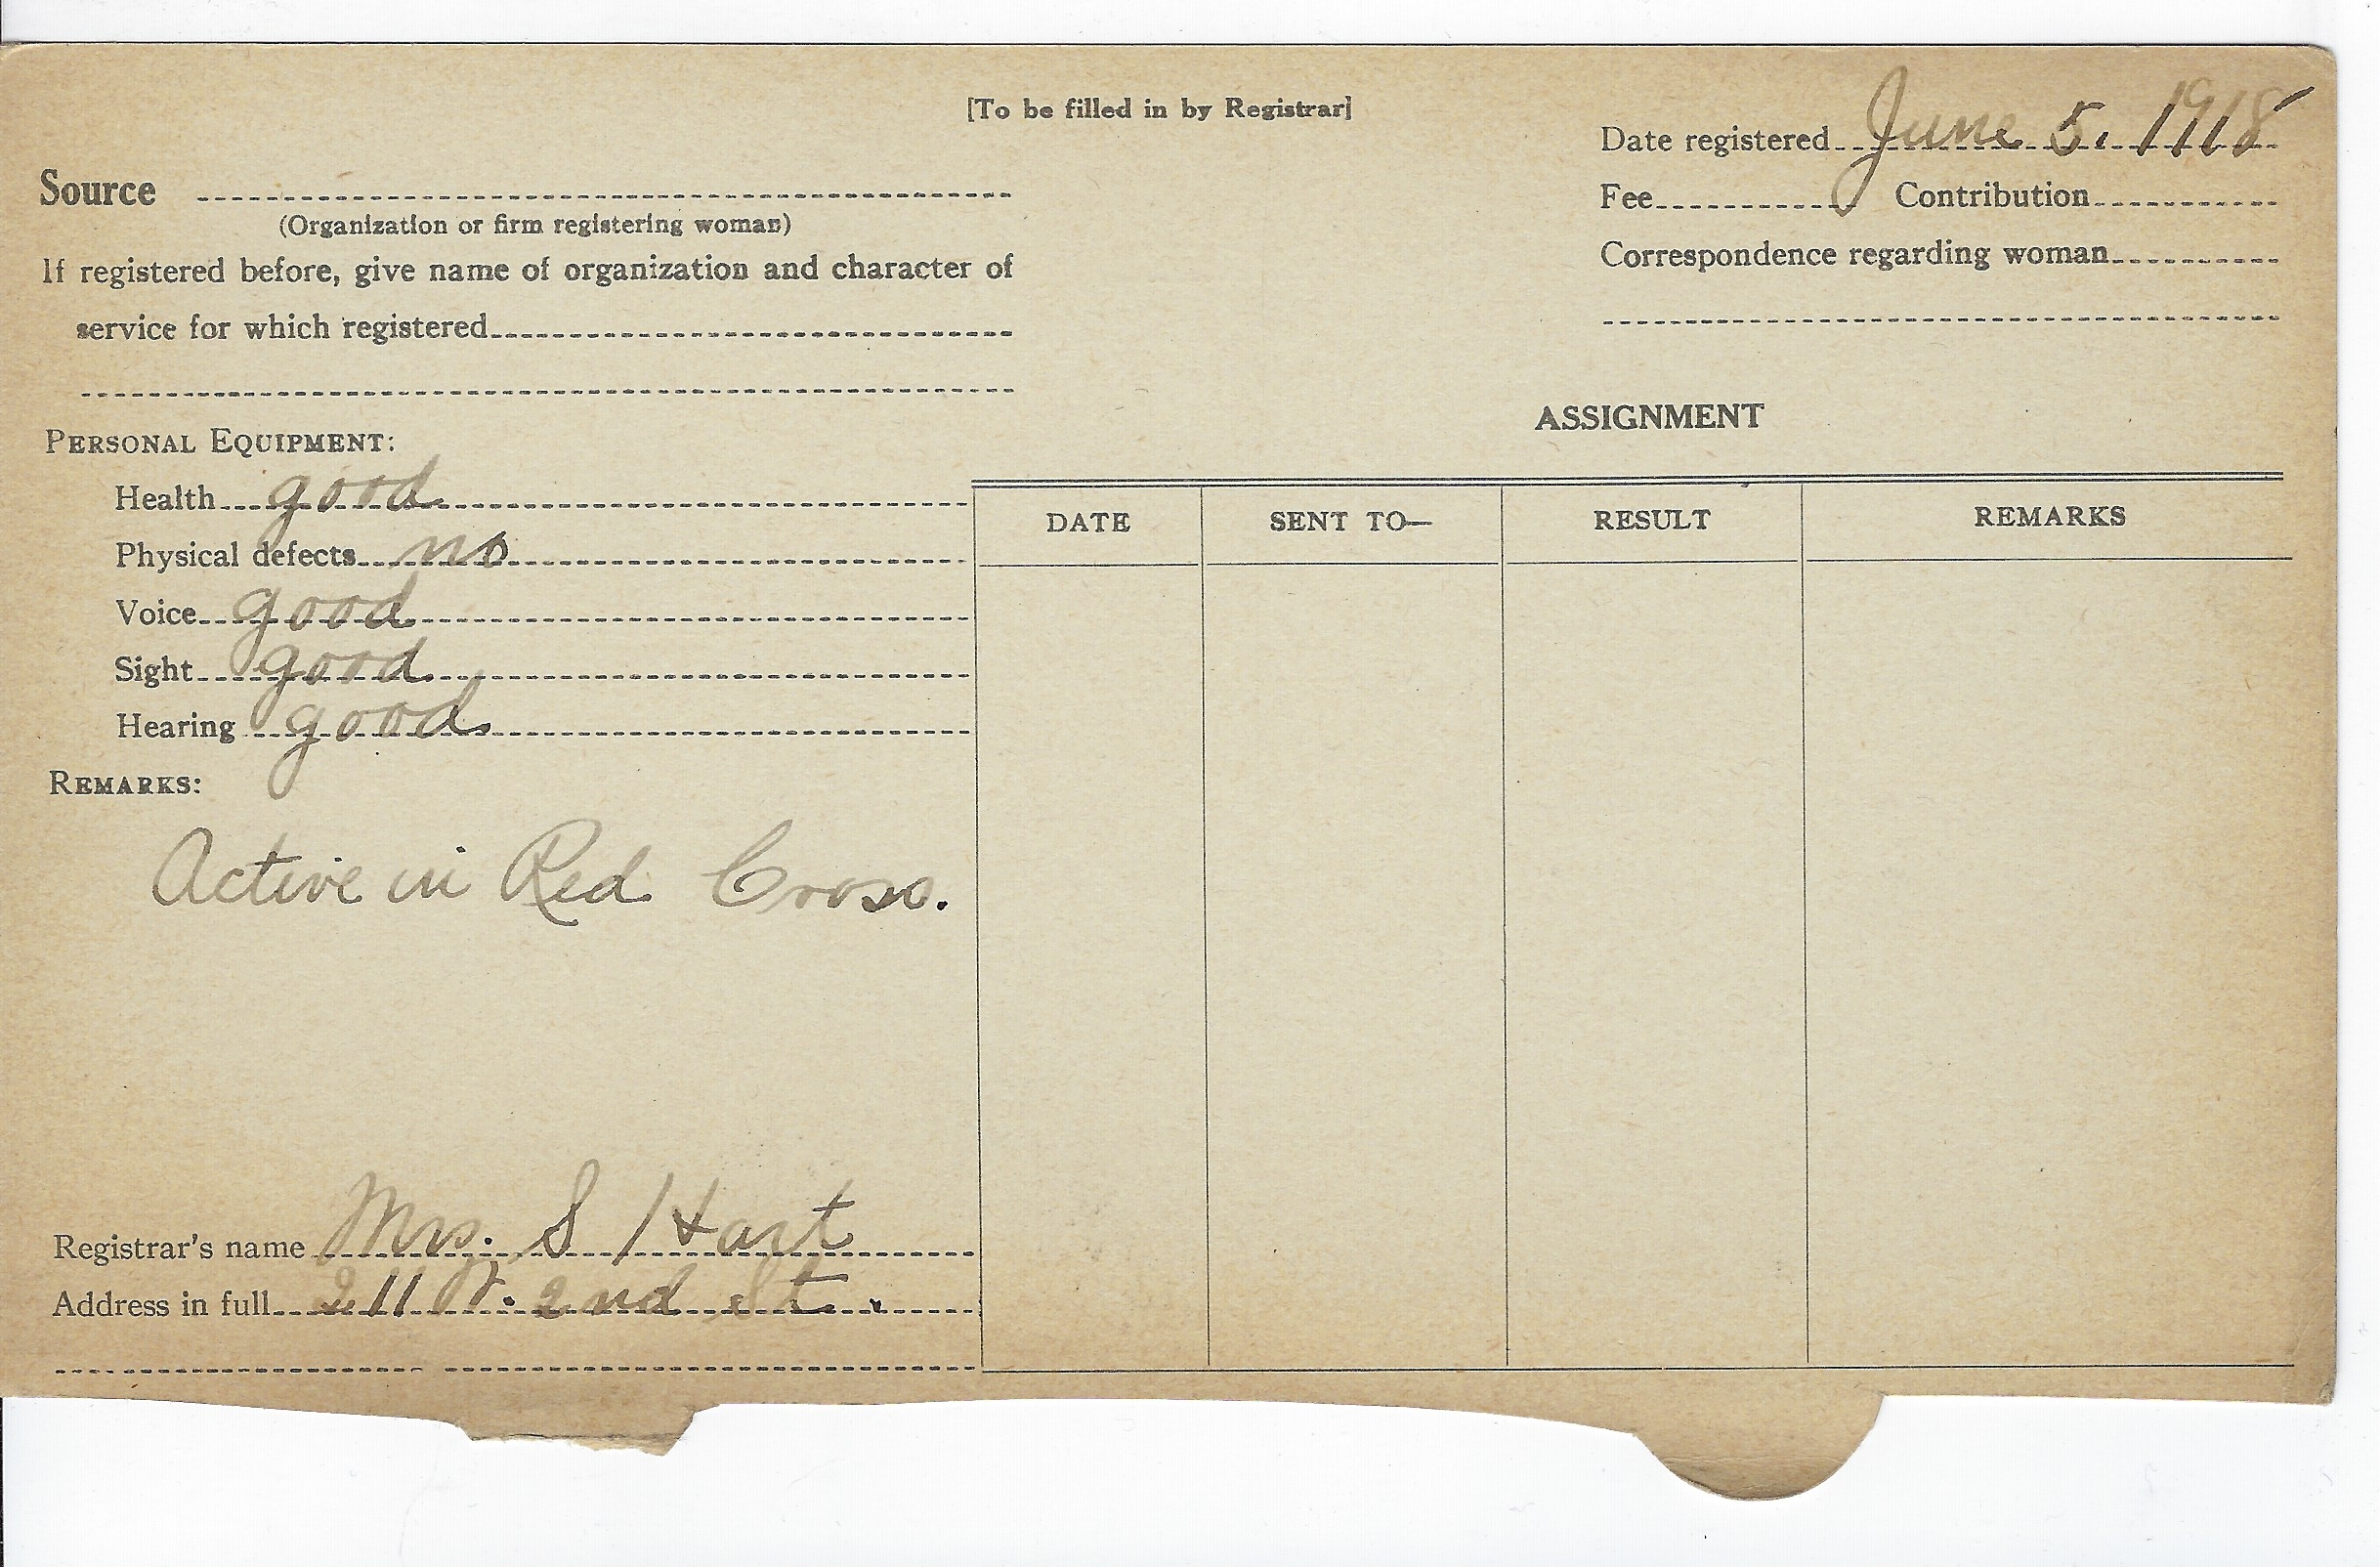 [To be filled in by Registrar]
Date registered June 5, 1918
Source
(Organization or firm registering woman)
Fee Contribution
If registered before, give name of organization and character of
service for which registered
Correspondence regarding woman
PERSONAL EQUIPMENT:
Health good
Physical defects no
Voice good
Sight good
Hearing good
REMARKS:
Active in Red Cross.
Registrar's name Mrs. S Hart
Address in full 211 2nd St.
ASSIGNMENT
DATE SENT TO— RESULT REMARKS